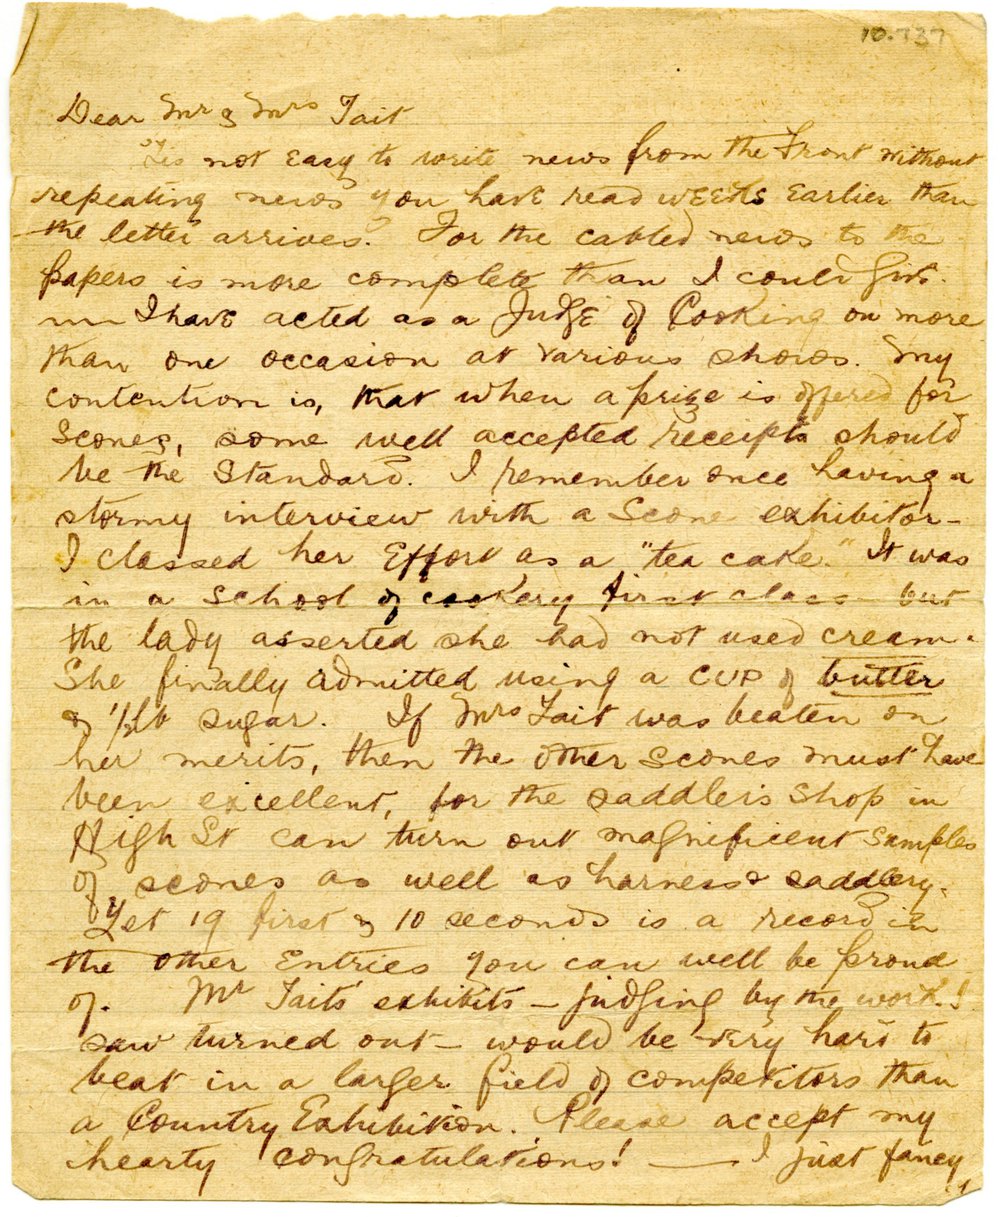 10.737
Dear Mr & Mrs Tait
'Tis not easy to write news from the Front without
repeating news you have read weeks earlier than
the letter arrives. For the cabled news to the
papers is more complete than I could give.
I have acted as a Judge of Cooking on more
than one occasion at various shows. My
contention is, that when a prize is offered for
Scones, some well accepted receipts should
be the Standard. I remember once having a
stormy interview with a Scone exhibitor –
I classed her Effort as a "tea cake." It was
in a School of cookery first class – but
the lady asserted she had not used cream.
She finally admitted using a CUP of butter
& 1/2 lb sugar. If Mrs Tait was beaten on
her merits, then the other scones must have
been excellent, for the saddler's Shop in
High St can turn out magnificent samples
of scones as well as harness & saddlery.
Yet 19 first & 10 seconds is a record in
the other Entries you can well be proud
of. Mr Tait's exhibits – judging by the work I
saw turned out – would be very hard to
beat in a larger field of competitors than
a Country Exhibition. Please accept my
hearty congratulations! — I just fancy
1